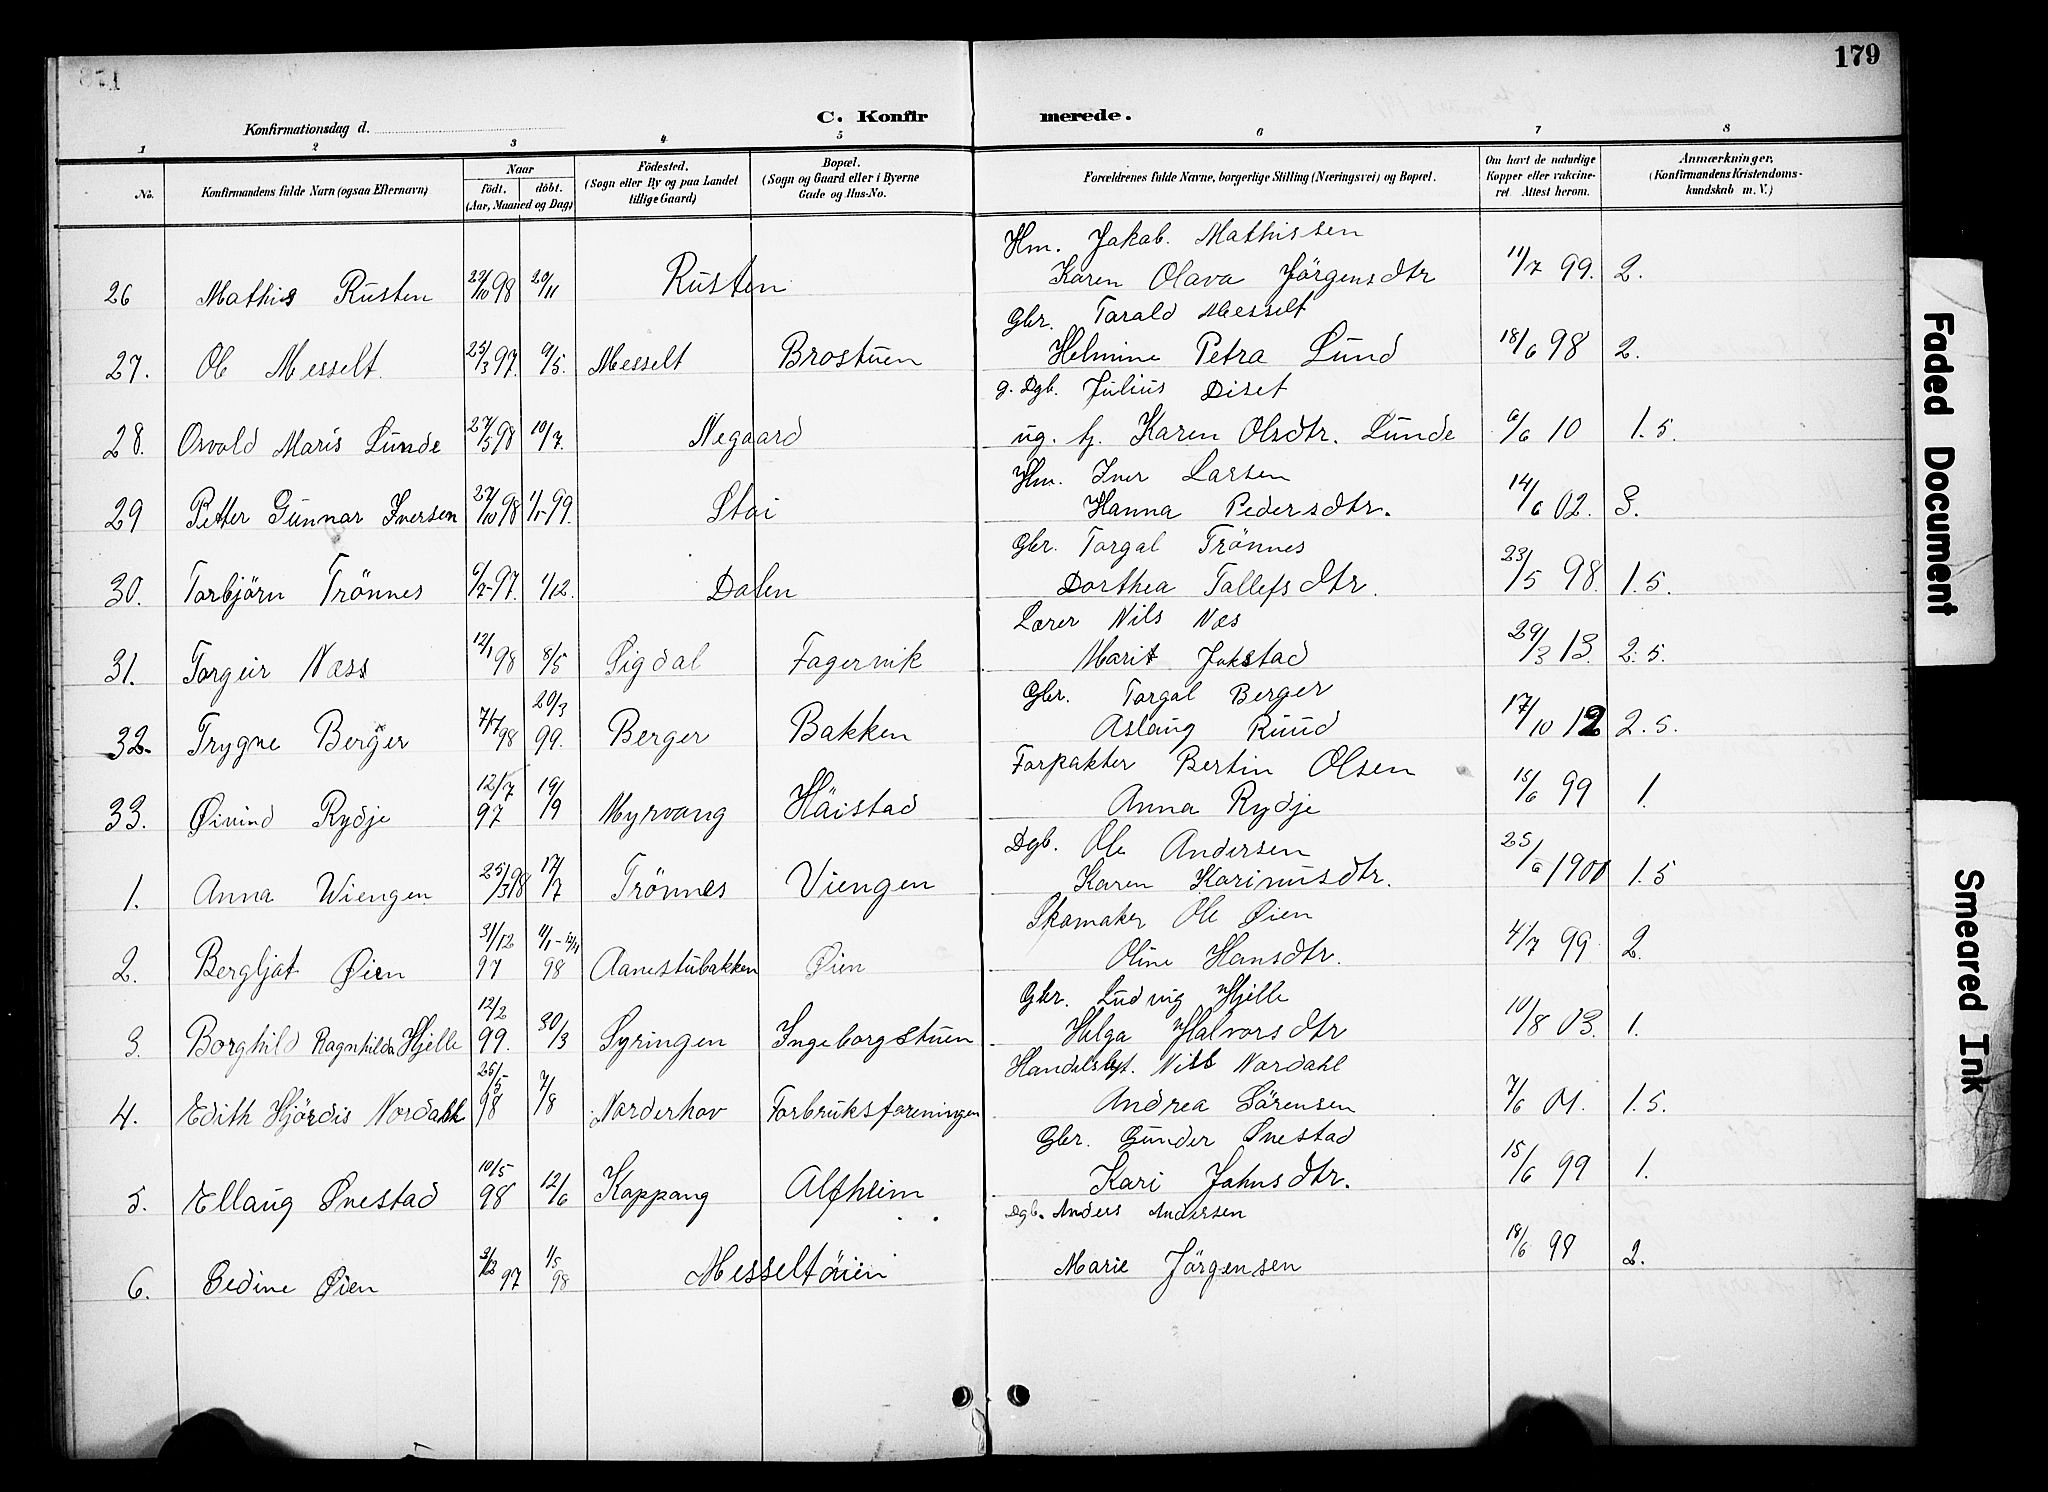 179
Konfirmationsdag d.
C. Konfirmerede.
1 2 3 4 5 6 7 8
No. Konfirmandens fulde Navn (ogsaa Efternavn) Naar født, døbt. (Aar, Maaned og Dag) Födested. (Sogn eller By og paa Landet tillige Gaard) Bopæl. (Sogn og Gaard eller i Byerne Gade og Hus-No. Forældrenes fulde Navne, borgerlige Stilling (Næringsvei) og Bopæl. Om havt de naturlige Kopper eller vakcineret. Attest herom. Anmærkninger, (Konfirmandens Kristendomskundskab m. V.)
Hm. Jakob. Mathissen
26 Mathis Rusten 98 20/11 Rusten Karen Olava Jörgensdtr 11/7 99. 2.
Gbr. Torald Messelt
27. Ole Messelt 25/3 97. 9/5. Messelt Brostuen Helmine Petra Lund 18/6 98 2.
g. Dgb. Julius Diset
28. Osvald Maris Lunde 27/5 98 10/7. Negaard ug. Karen Olsdtr. Lunde 6/6 10 1.5.
Hm. Iver Larsen
29 Petter Gunnar Iversen 27/10 98 1/1 99. Stai Hanna Pedersdtr. 14/6 02. 3.
Gbr. Torgal Trönnes
30. Torbjörn Trönnes 97. 1/12. Dalen Dorthea Tallefsdtr. 23/5 98. 1.5.
Lærer Nils Næs
31. Torgeir Næss 12/1 98 8/5 Sigdal Fagervik Marit Jokstad 29/3 13. 2.5.
Gbr. Torgal Berger
32. Trygve Berger 7/7 98 20/3 99. Berger Bakken Aslaug Ruud 17/10 12 2.5.
Forpakter Bertin Olsen
33. Øivind Rydje 12/7 97 19/9 Myrvang Häistad Anna Rydje 15/6 99 1.
Dgb. Ole Andersen
1. Anna Wiengen 25/3 98 17/7 Trönnes Viengen Karen Karinusdtr. 25/6 1901 1.5
Skomaker Ole Øien
2. Bergljot Øien 31/12 97 98 Aanestubakken Øien Oline Hansdtr. 4/7 99 2.
Gbr. Ludvig Hjelle
3. Borghild Ragnhilda Hjelle 12/2 99. 30/3 Syringen Ingeborgstuen Helga Halvorsdtr 10/8 03. 1.
Handelsbst. Nils Nordahl
4. Edith Hjördis Nordahl 25/5 98 7/8 Norderhov Forbruksforeningen Andrea Sörensen 7/6 01. 1.5.
Gbr. Gunder Ovestad
5. Ellaug Ovestad 10/5 98 12/6 Koppang Alfheim Kari Johnsdtr. 15/6 99 1.
Dgb. Anders Andersen
6. Gedine Øien 97 1/5 98 Messeltöien Marie Jörgensen 18/6 98 2.
Faded Document
Smeared Ink